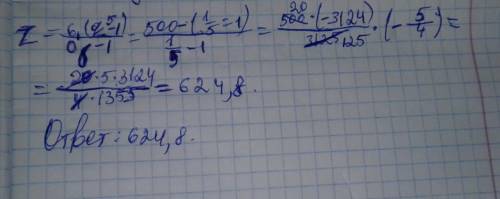 = 6₁(q⁵-1) / q-1 = 500-(1/5=1) / 1/5-1 = 20 500·(-3124) / 3125 125 · (-5/4) =
= 20·5·3124 / 4·1353 = 624,8.
Ответ: 624,8.